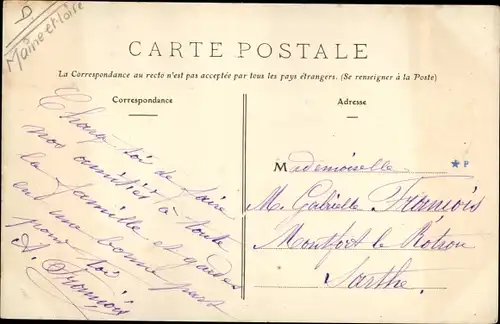 D
Maine et Loire
CARTE POSTALE
La Correspondance au recto n'est pas acceptée par tous les pays étrangers. (Se renseigner à la Poste)
Correspondance
Charge toi de faire
nos amitiés à toute
la famille et gardes
en une bonne part
pour toi
A. François
Adresse
Mademoiselle
*P
M. Gabrielle François
Montfort le Rotrou
Sarthe.